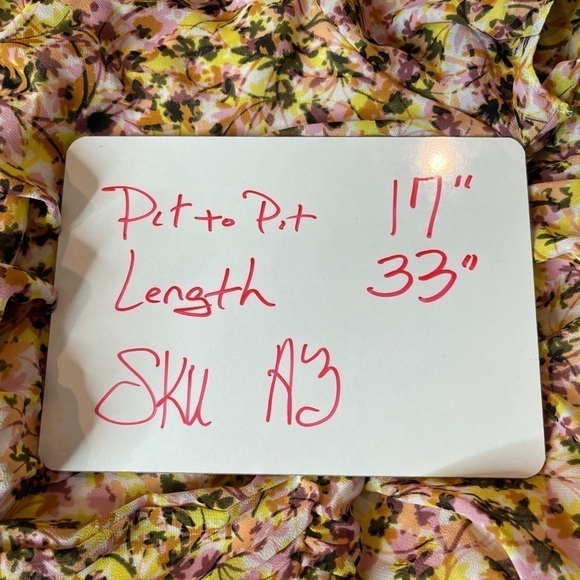 Pit to Pit 17"
Length 33"
SKU A3